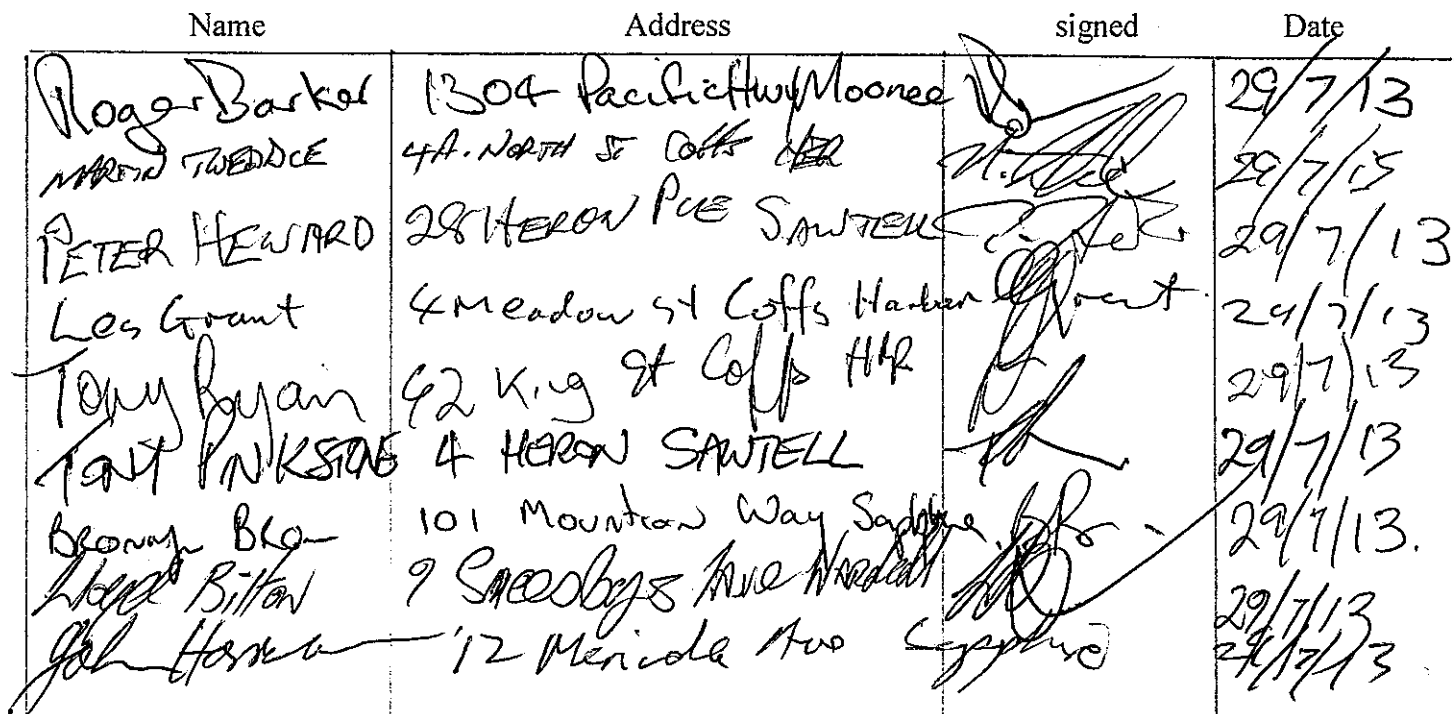 Name Address signed Date
Roger Barker 1304 Pacific Hwy Moonee 29/7/13
MARTIN TWEDDLE 4A. NORTH ST Coffs HBR 29/7/13
PETER HEWARD 28 HERON PCE SAWTELL 29/7/13
Les Grant 4 Meadow st Coffs Harbour Grant 29/7/13
Tony Ryan 42 King St Coffs HBR 29/7/13
TONY PINKSTONE 4 HERON SAWTELL 29/7/13
101 Mountain Way Sapphire 29/7/13.
Lloyd Bilton 9 Ave 29/7/13
John 12 Ave Sapphire 29/7/13